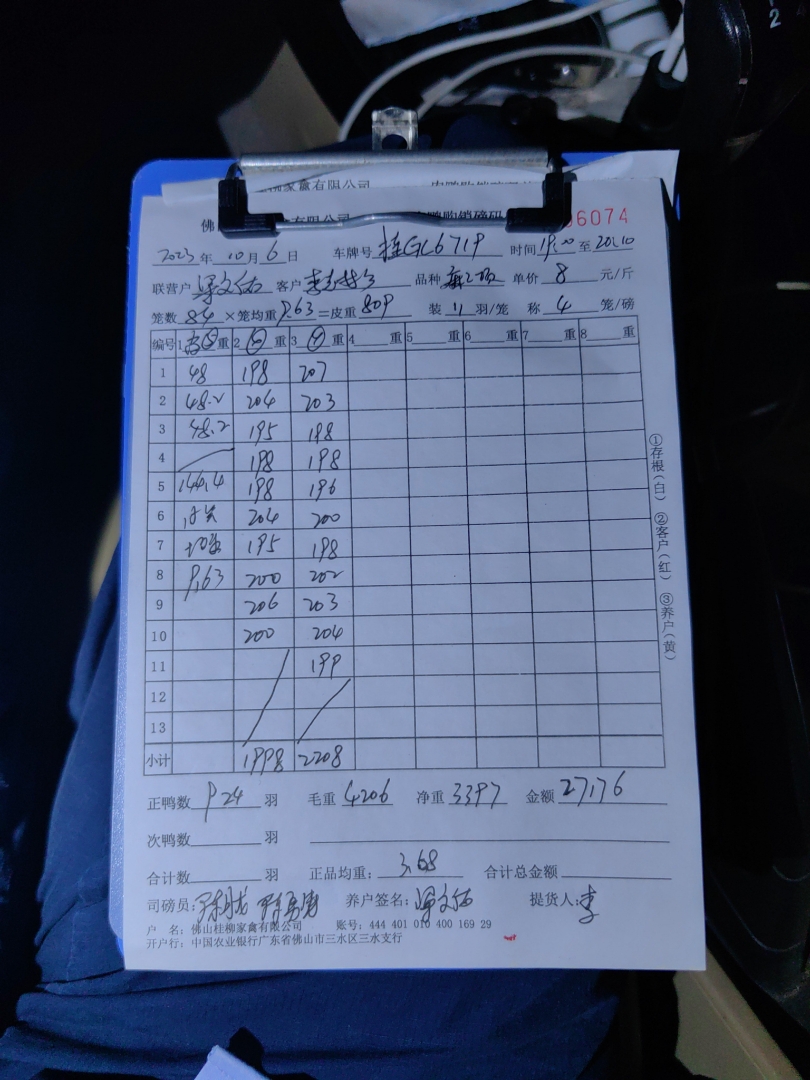 家禽有限公司
佛 有限公司 鸭购销磅码 6074
2023年10月6日 车牌号 桂GL6719 时间19:00至20:10
联营户 梁文佑 客户 品种 单价 8 元/斤
笼数 84 ×笼均重 9.63 =皮重 809 装 11 羽/笼 称 4 笼/磅
编号 1 重 2 重 3 重 4 重 5 重 6 重 7 重 8 重
1 48 198 207
2 48.2 204 203
3 48.2 195 198
4 198 198
5 144.4 198 196
6 15只 204 200
7 均重 195 198
8 9.63 200 202
9 206 203
10 200 204
11 199
12
13
小计 1998 2208
正鸭数 924 羽 毛重 4206 净重 3397 金额 27176
次鸭数 羽
合计数 羽 正品均重: 3.68 合计总金额
司磅员: 养户签名: 梁文佑 提货人: 李
户 名: 佛山桂柳家禽有限公司 账号: 444 401 010 400 169 29
开户行: 中国农业银行广东省佛山市三水区三水支行
①存根(白) ②客户(红) ③养户(黄)
2